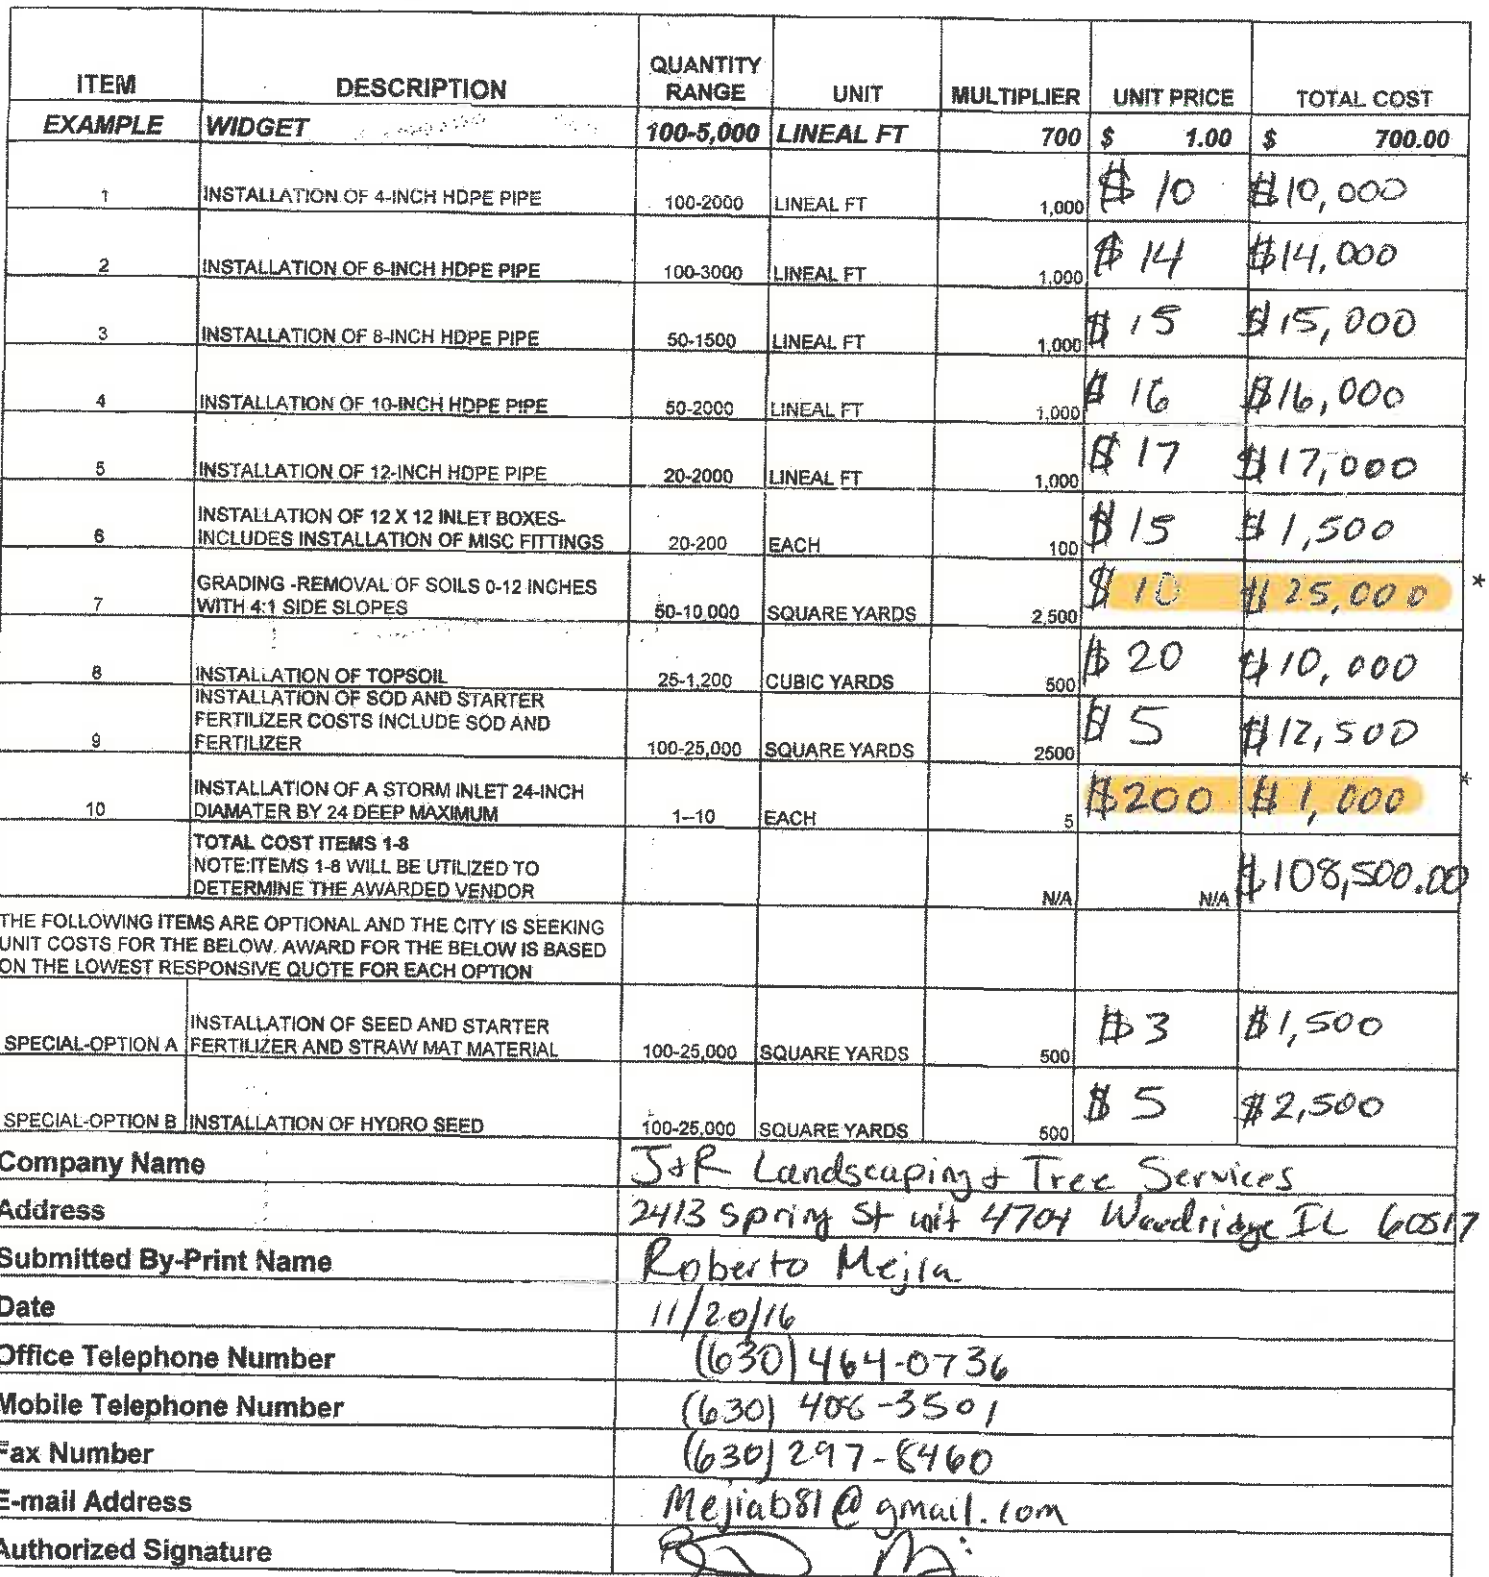 ITEM DESCRIPTION QUANTITY RANGE UNIT MULTIPLIER UNIT PRICE TOTAL COST
EXAMPLE WIDGET 100-5,000 LINEAL FT 700 $ 1.00 $ 700.00
1 INSTALLATION OF 4-INCH HDPE PIPE 100-2000 LINEAL FT 1,000 $ 10 $10,000
2 INSTALLATION OF 6-INCH HDPE PIPE 100-3000 LINEAL FT 1,000 $ 14 $14,000
3 INSTALLATION OF 8-INCH HDPE PIPE 50-1500 LINEAL FT 1,000 $ 15 $15,000
4 INSTALLATION OF 10-INCH HDPE PIPE 50-2000 LINEAL FT 1,000 $ 16 $16,000
5 INSTALLATION OF 12-INCH HDPE PIPE 20-2000 LINEAL FT 1,000 $ 17 $17,000
INSTALLATION OF 12 X 12 INLET BOXES-
6 INCLUDES INSTALLATION OF MISC FITTINGS 20-200 EACH 100 $ 15 $ 1,500
GRADING -REMOVAL OF SOILS 0-12 INCHES
7 WITH 4:1 SIDE SLOPES 50-10,000 SQUARE YARDS 2,500 $ 10 $ 25,000 *
8 INSTALLATION OF TOPSOIL 25-1,200 CUBIC YARDS 500 $ 20 $10,000
INSTALLATION OF SOD AND STARTER
FERTILIZER COSTS INCLUDE SOD AND
9 FERTILIZER 100-25,000 SQUARE YARDS 2500 $ 5 $12,500
INSTALLATION OF A STORM INLET 24-INCH
10 DIAMATER BY 24 DEEP MAXIMUM 1--10 EACH 5 $200 $ 1,000 *
TOTAL COST ITEMS 1-8
NOTE:ITEMS 1-8 WILL BE UTILIZED TO
DETERMINE THE AWARDED VENDOR N/A N/A $108,500.00
THE FOLLOWING ITEMS ARE OPTIONAL AND THE CITY IS SEEKING
UNIT COSTS FOR THE BELOW. AWARD FOR THE BELOW IS BASED
ON THE LOWEST RESPONSIVE QUOTE FOR EACH OPTION
INSTALLATION OF SEED AND STARTER
SPECIAL-OPTION A FERTILIZER AND STRAW MAT MATERIAL 100-25,000 SQUARE YARDS 500 $3 $1,500
SPECIAL-OPTION B INSTALLATION OF HYDRO SEED 100-25,000 SQUARE YARDS 500 $ 5 $2,500
Company Name J&R Landscaping & Tree Services
Address 2413 Spring St unit 4704 Woodridge IL 60517
Submitted By-Print Name Roberto Mejia
Date 11/20/16
Office Telephone Number (630) 464-0736
Mobile Telephone Number (630) 406-3501
Fax Number (630) 297-8460
E-mail Address Mejiab81@gmail.com
Authorized Signature